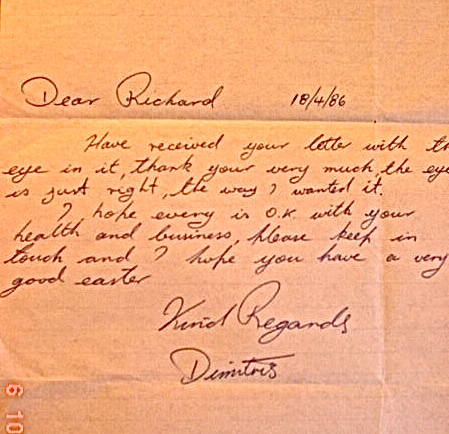 Dear Richard 18/4/86
Have received your letter with th
eye in it, thank your very much, the eye
is just right, the way I wanted it.
I hope every is O.K with your
health and business, please keep in
touch and I hope you have a very
good easter
Kind Regards
Dimitris
6 10